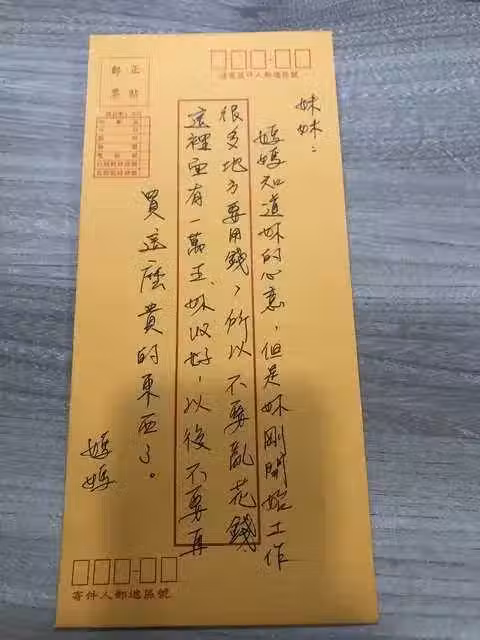 妹妹：
媽媽知道妳的心意，但是妳剛開始工作
很多地方要用錢，所以不要亂花錢
這裡面有一萬五，妳收好，以後不要再
買這麼貴的東西了。
媽媽
正貼
郵票
寄件人郵遞區號